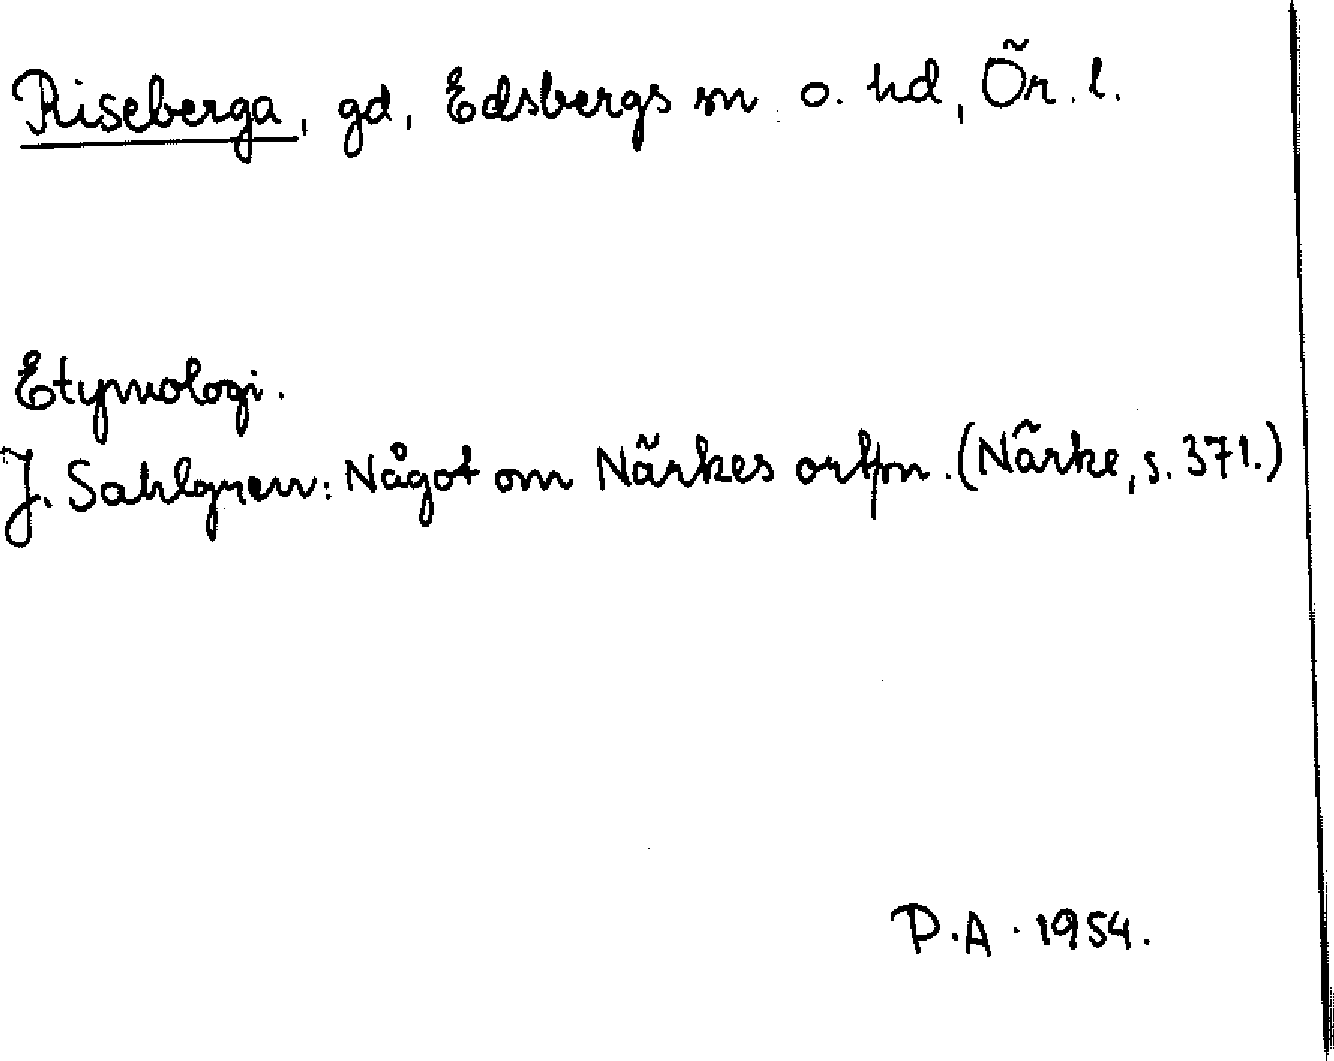 Riseberga, gd, Edsbergs sn o. hd, Ör. l.
Etymologi.
J. Sahlgren: Något om Närkes ortn. (Närke, s. 371.)
P.A. 1954.